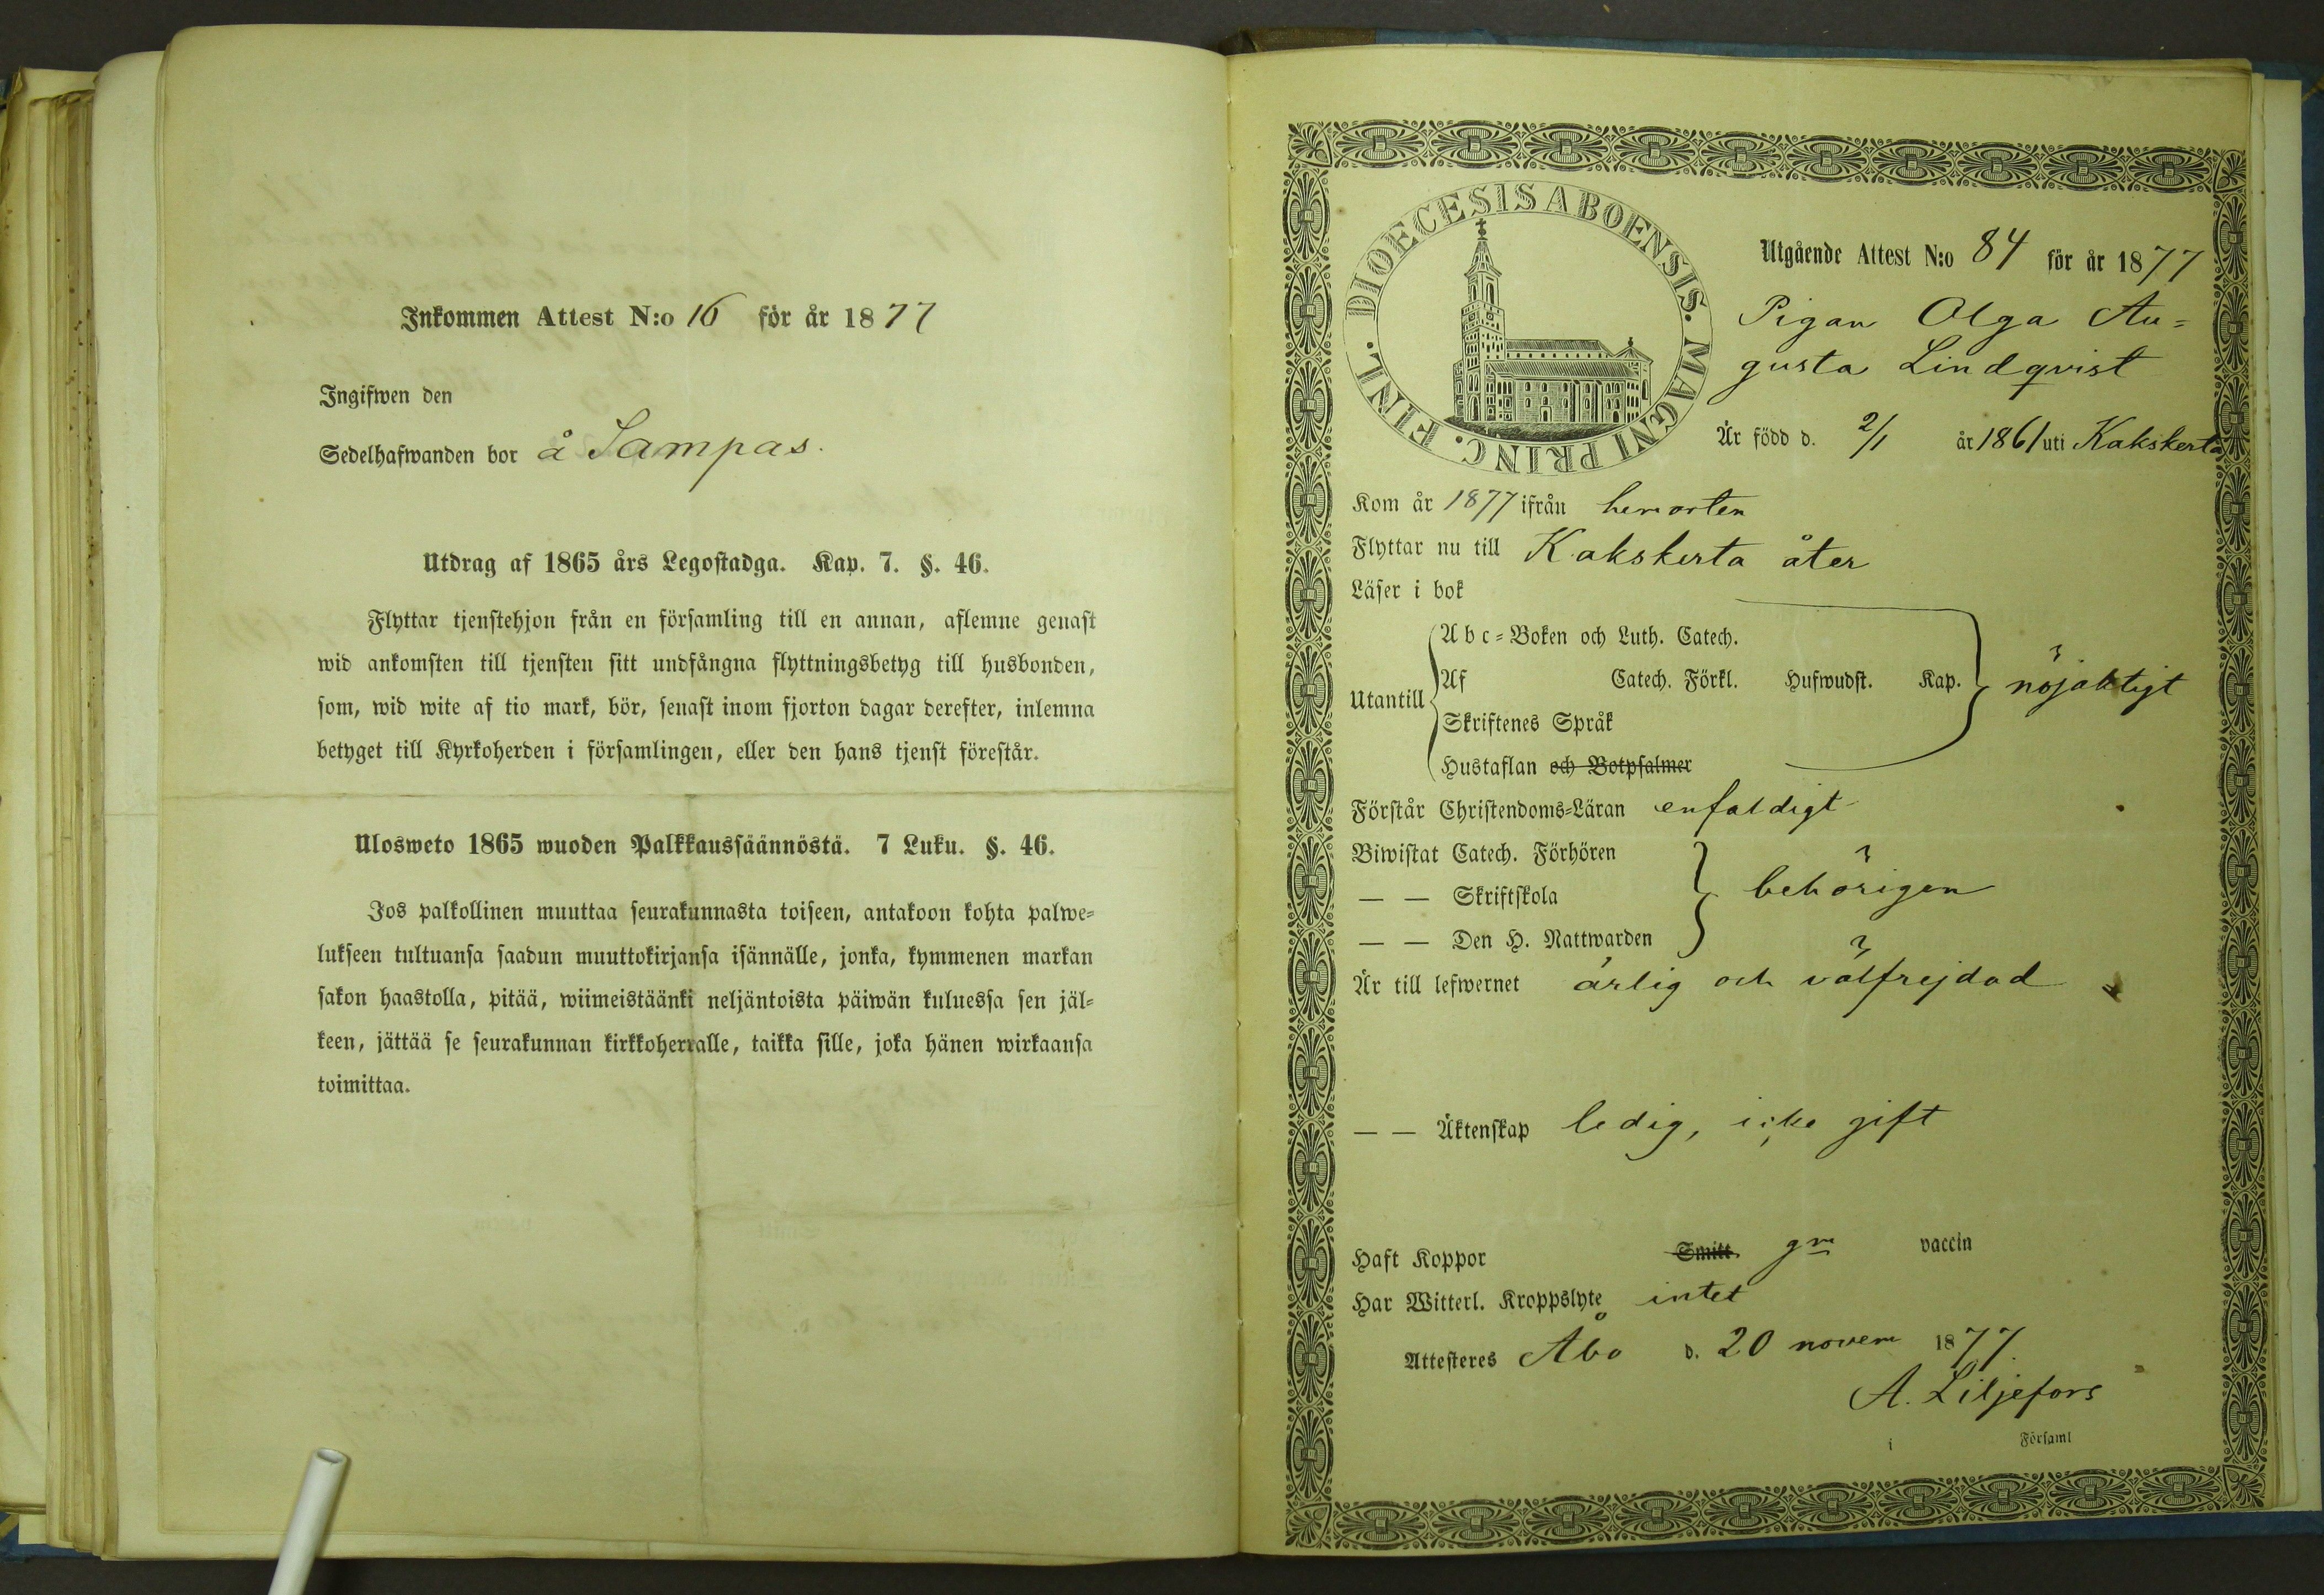 Inkommen Attest N:o 16 för år 1877
Ingifwen den
Sedelhafwanden bor å Sampas.
Utdrag af 1865 års Legostadga. Kap. 7. §. 46.
Flyttar tjenstehjon från en församling till en annan, aflemne genast
wid ankomsten till tjensten sitt undfångna flyttningsbetyg till husbonden,
som, wid wite af tio mark, bör, senast inom fjorton dagar derefter, inlemna
betyget till Kyrkoherden i församlingen, eller den hans tjenst förestår.
Ulosweto 1865 wuoden Palkkaussäännöstä. 7 Luku. §. 46.
Jos palkollinen muuttaa seurakunnasta toiseen, antakoon kohta palwe=
lukseen tultuansa saadun muuttokirjansa isännälle, jonka, kymmenen markan
sakon haastolla, pitää, wiimeistäänki neljäntoista päiwän kuluessa sen jäl=
keen, jättää se seurakunnan kirkkoherralle, taikka sille, joka hänen wirkaansa
toimittaa.
DIOECESIS ABOENSIS. MAGNI PRINC. FINL.
Utgående Attest N:o 84 för år 1877
Pigan Olga Au=
gusta Lindqvist
Är född d. 2/1 år 1861 uti Kakskerta
Kom år 1877 ifrån hemorten
Flyttar nu till Kakskerta åter
Läser i bok
Utantill
Abc=Boken och Luth. Catech.
Af Catech. Förkl. Hufwudst. Kap.
Skriftenes Språk
Hustaflan och Botpsalmer
nöjaktigt
Förstår Christendoms=Läran enfaldigt
Biwistat Catech. Förhören
— — Skriftskola behörigen
— — Den H. Nattwarden
Är till lefwernet ärlig och välfrejdad
— — Äktenskap ledig, icke gift
Haft Koppor Smitt gm vaccin
Har Witterl. Kroppslyte intet
Attesteres Åbo d. 20 novem 1877
A. Liljefors
i Församl